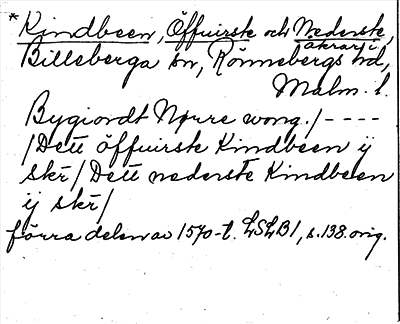 *Kindbeen, Öffuirste och Nederste,
åkrar i
Billeberga sn, Rönnebergs hd,
Malm. l.
Bygiordt Nørre wong. / - - - -
/ Dett öffuirste Kindbeen ij
skr / Dett nederste Kindbeen
ij skr /
förra delen av 1570-t. LSLB1, s. 138. orig.